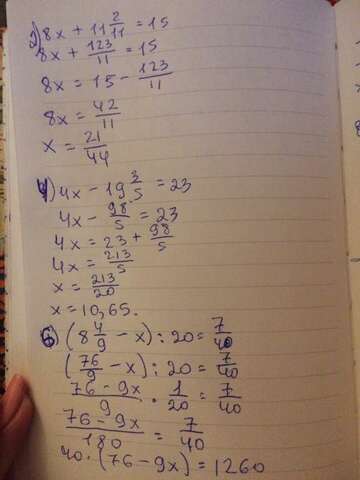 2) 8x + 11 2/11 = 15
8x + 123/11 = 15
8x = 15 - 123/11
8x = 42/11
x = 21/44
4) 4x - 19 3/5 = 23
4x - 98/5 = 23
4x = 23 + 98/5
4x = 213/5
x = 213/20
x = 10,65.
6) (8 4/9 - x) : 20 = 7/40
(76/9 - x) : 20 = 7/40
76 - 9x/9 · 1/20 = 7/40
76 - 9x/180 = 7/40
40 · (76 - 9x) = 1260